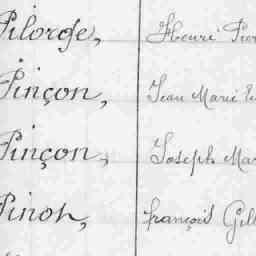 Pilorge, Henri Pier
Pinçon, Jean Marie
Pinçon, Joseph Mar
Pinot, François Gil